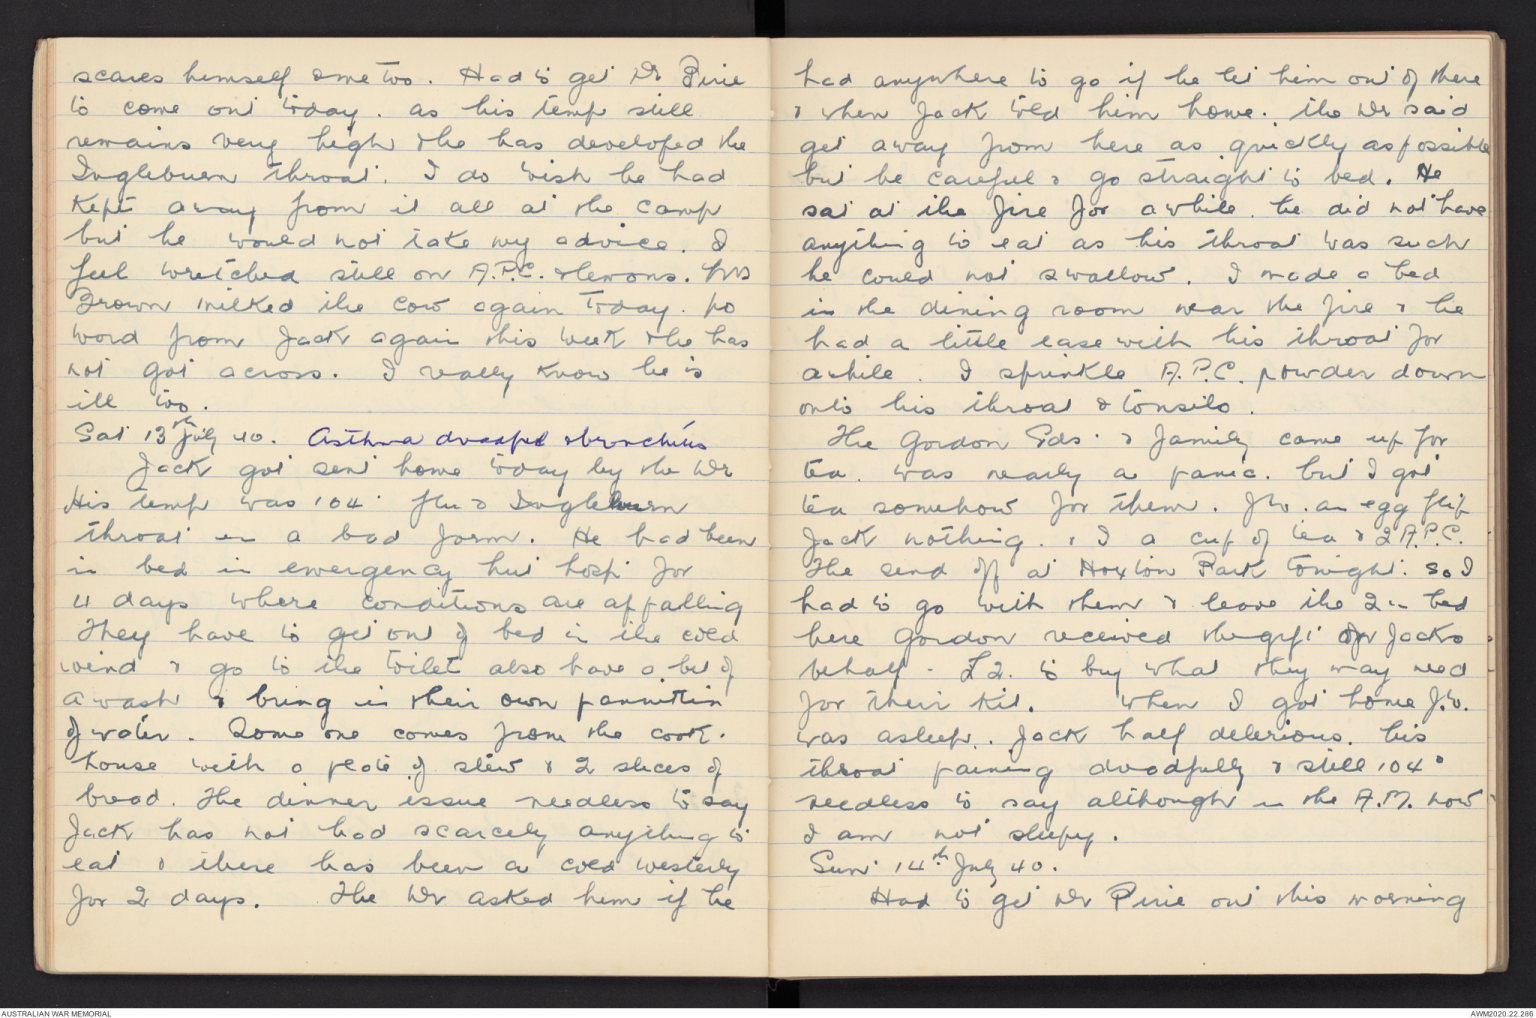 scares himself & me too. Had to get Dr Pirie
to come out today. as his temp still
remains very high & he has developed the
Ingleburn throat. I do wish he had
kept away from it all at the camp
but he would not take my advice. I
feel wretched still on A.P.C. & lemons. Mrs
Brown milked the cow again today. No
word from Jack again this week & he has
not got across. I really know he is
ill too.
Sat 13th July 40. Asthma dreadful & bronchitis
Jack got sent home today by the Dr
His temp was 104° flu & Ingleburn
throat in a bad form. He had been
in bed in emergency hut hosp for
4 days where conditions are appalling
They have to get out of bed in the cold
wind & go to the toilet also have a bit of
a wash & bring in their own pannikin
of water. Some one comes from the cook.
house with a plate of stew & 2 slices of
bread. The dinner issue needless to say
Jack has not had scarcely anything to
eat & there has been a cold westerly
for 2 days. The Dr asked him if he
had anywhere to go if he let him out of there
& when Jack told him home. the Dr said
get away from here as quickly as possible
but be careful & go straight to bed. He
sat at the fire for awhile. he did not have
anything to eat as his throat was such
he could not swallow. I made a bed
in the dining room near the fire & he
had a little ease with his throat for
awhile. I sprinkle A.P.C. powder down
onto his throat & tonsils.
The Gordon Eds. & family came up for
tea. was nearly a panic. but I got
tea somehow for them. J.W. an egg flip
Jack nothing. & I a cup of tea & 2 A.P.C.
The send off at Hoxton Park tonight. So I
had to go with them & leave the 2 in bed
here Gordon received the gift on Jacks
behalf. £2. to buy what they may need
for their kit. When I got home J.W.
was asleep.. Jack half delerious. his
throat paining dreadfully & still 104°
needless to say although in the A.M. now
I am not sleepy.
Sun 14th July 40.
Had to get Dr Pirie out this morning
AUSTRALIAN WAR MEMORIAL
AWM2020.22.286